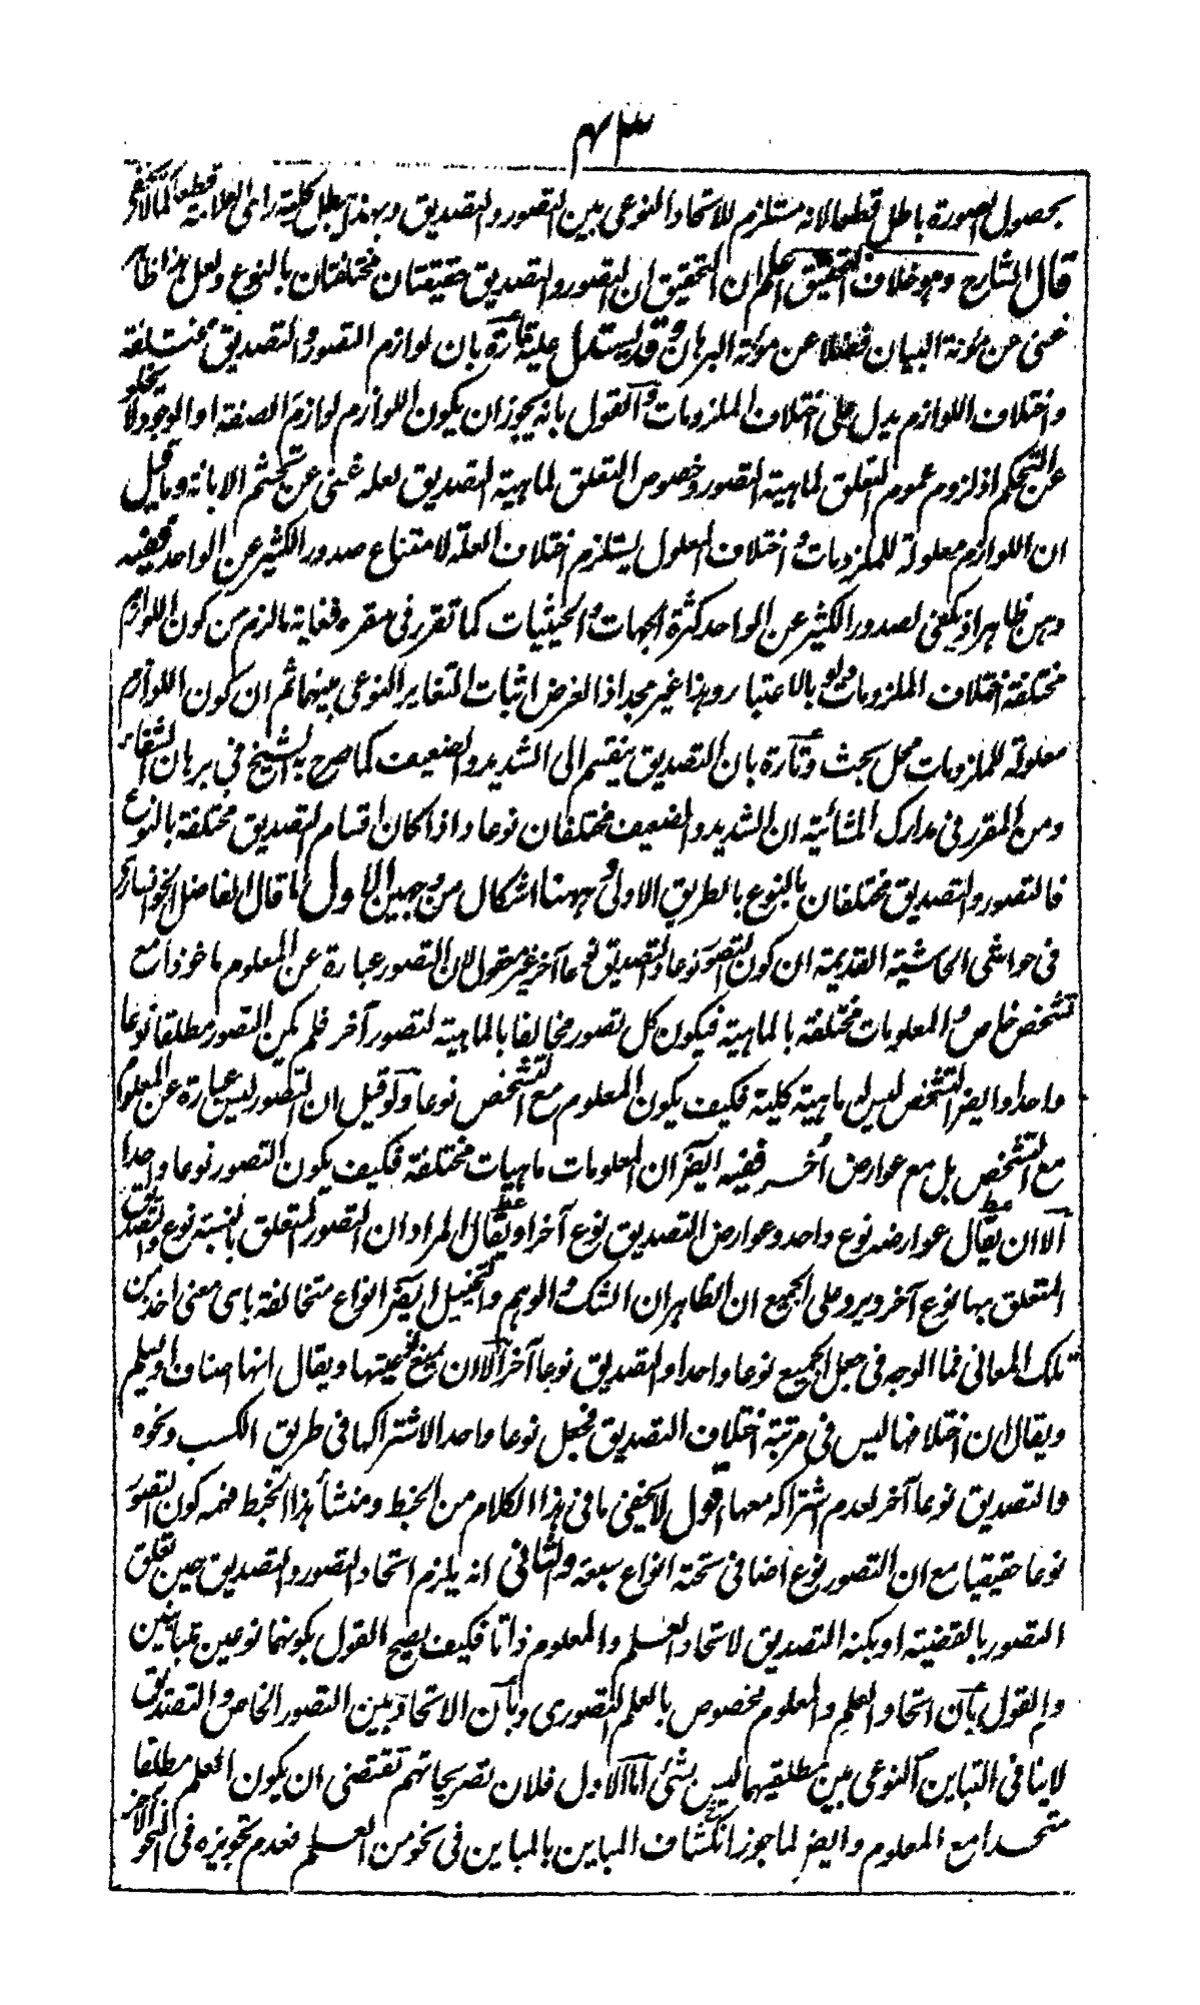 ۴۳
بحصول الصورة باطل قطعا لانه مستلزم للاتحاد النوعى بين التصور والتصديق وبهذا يبطل كلية راى العلامة قطعا كما لا يخفى
قال الشارح وهو خلاف التحقيق اعلم ان التحقيق ان التصور والتصديق حقيقتان مختلفتان بالنوع ولعل هذا ظاهر
غنى عن مؤنة البيان فضلا عن مؤنة البرهان وقد يستدل عليه تارة بان لوازم التصور والتصديق مختلفة
واختلاف اللوازم يدل على اختلاف الملزومات والقول بانه يجوز ان يكون اللوازم لوازم الصفة او الوجود لا يخلو
عن التحكم اذ لزوم عموم التعلق لماهية التصور وخصوص التعلق لماهية التصديق لعله غنى عن تجشم الابانة وما قيل
ان اللوازم معلولة للملزومات واختلاف المعلول يستلزم اختلاف العلة لامتناع صدور الكثير عن الواحد ففيه
وهن ظاهر اذ يكفى لصدور الكثير عن الواحد كثرة الجهات والحيثيات كما تقرر فى مقره فغاية ما لزم من كون اللوازم
مختلفة اختلاف الملزومات ولو بالاعتبار وهذا غير مجد اذ الغرض اثبات التغاير النوعى بينهما ثم ان كون اللوازم
معلولة للملزومات محل بحث وتارة بان التصديق ينقسم الى الشديد والضعيف كما صرح به الشيخ فى برهان الشفاء
ومن المقرر فى مدارك المشائية ان الشديد والضعيف مختلفان نوعا واذا كان اقسام التصديق مختلفة بالنوع
فالتصور والتصديق مختلفان بالنوع بالطريق الاولى وههنا اشكال من وجهين الاول ما قال الفاضل الخوانسارى
فى حواشى الحاشية القديمة ان كون التصور نوعا والتصديق نوعا آخر غير معقول لان التصور عبارة عن المعلوم ماخوذا مع
تشخص خاص والمعلومات مختلفة بالماهية فيكون كل تصور مخالفا بالماهية لتصور آخر فلم يكن التصور مطلقا نوعا
واحدا وايضا التشخص ليس له ماهية كلية فكيف يكون المعلوم مع التشخص نوعا ولو قيل ان التصور ليس عبارة عن المعلوم
مع التشخص بل مع عوارض أخر ففيه ايضا ان المعلومات ماهيات مختلفة فكيف يكون التصور نوعا واحدا
الا ان يقال عوارضه نوع واحد وعوارض التصديق نوع آخر او يقال المراد ان التصور المتعلق بالنسبة نوع والتصديق
المتعلق بها نوع آخر ويرد على الجميع ان الظاهر ان الشك والوهم والتخييل ايضا انواع متخالفة باى معنى اخذ من
تلك المعانى فما الوجه فى جعل الجميع نوعا واحدا والتصديق نوعا آخر الا ان يمنع نوعيتها ويقال انها اصناف او يسلم
ويقال ان اختلافها ليس فى مرتبة اختلاف التصديق فجعل نوعا واحدا لاشتراكها فى طريق الكسب ونحوه
والتصديق نوعا آخر لعدم اشتراكه معها اقول لا يخفى ما فى هذا الكلام من الخبط ومنشأ هذا الخبط فهمه كون التصور
نوعا حقيقيا مع ان التصور نوع اضافى تحته انواع سبعة والثانى انه يلزم اتحاد التصور والتصديق حين تعلق
التصور بالقضية او بكنه التصديق لاتحاد العلم والمعلوم ذاتا فكيف يصح القول بكونهما نوعين متباينين
والقول بان اتحاد العلم والمعلوم مخصوص بالعلم التصورى وبان الاتحاد بين التصور الخاص والتصديق
لا ينافى التباين النوعى بين مطلقيهما ليس بشئ اما الاول فلان تصريحاتهم تقتضى ان يكون العلم مطلقا
متحدا مع المعلوم وايضا لما جوز انكشاف المباين بالمباين فى نحو من العلم فعدم تجويزه فى النحو الآخر